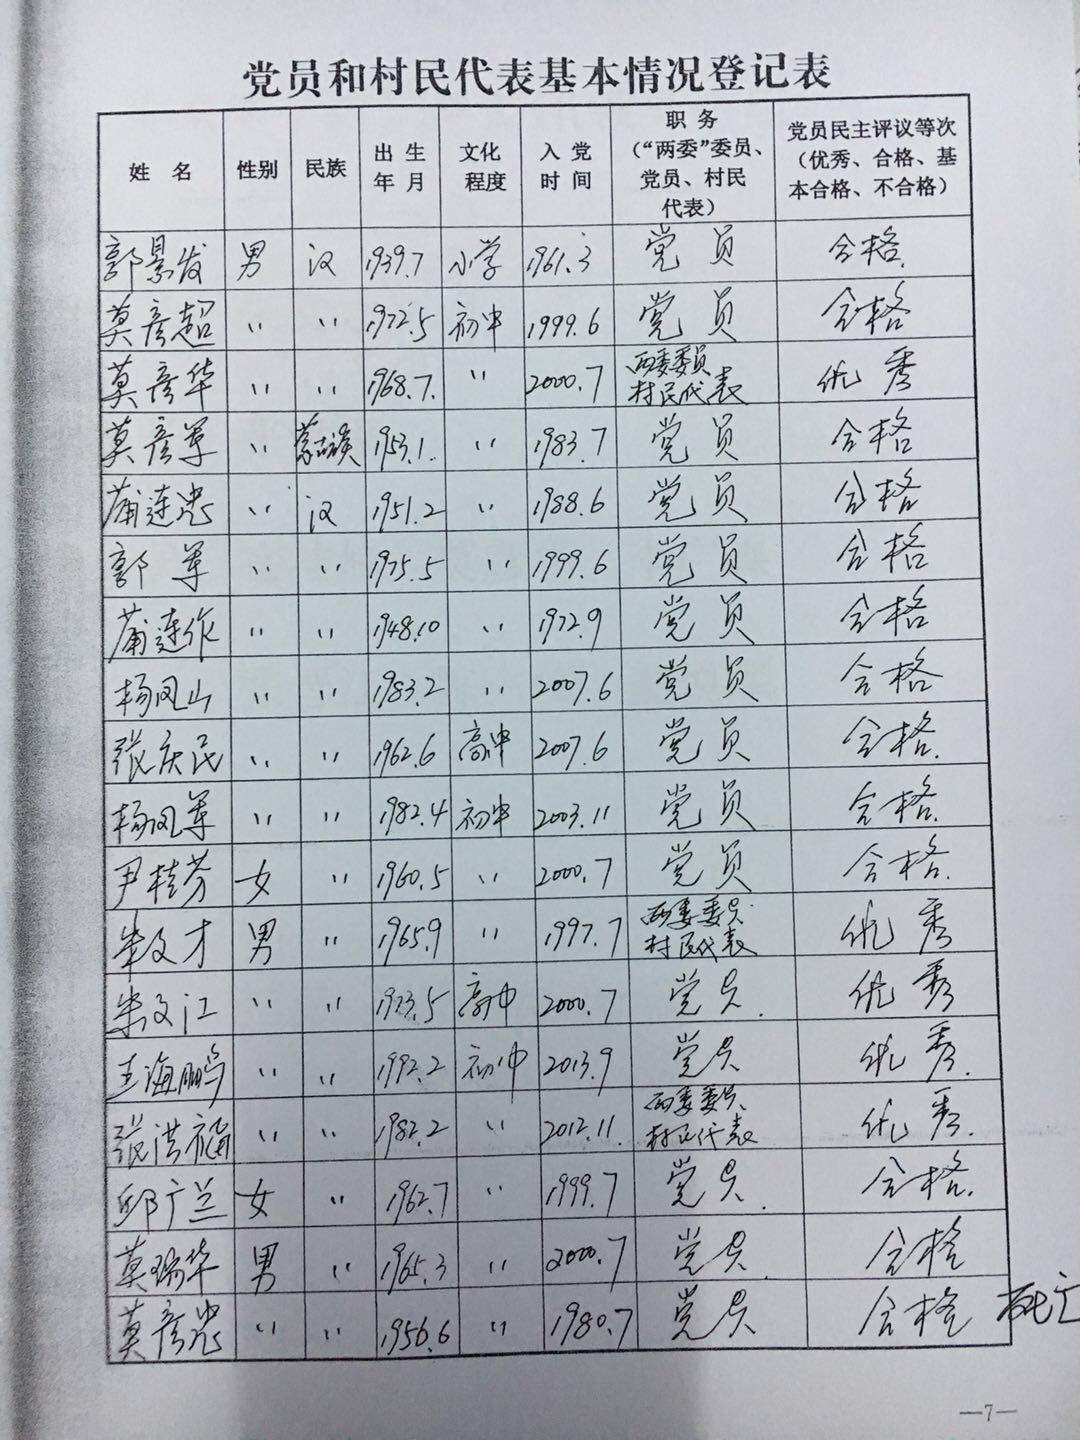 党员和村民代表基本情况登记表
姓 名 性别 民族 出 生 年 月 文化 程度 入 党 时 间 职 务 (“两委”委员、党员、村民代表) 党员民主评议等次 (优秀、合格、基本合格、不合格)
郭景发 男 汉 1939.7 小学 1961.3 党员 合格.
莫彦超 〃 〃 1972.5 初中 1999.6 党员 合格
莫彦华 〃 〃 1968.7. 〃 2000.7 两委委员 村民代表 优秀
莫彦军 〃 蒙古族 1953.1. 〃 1983.7 党员 合格
蒲连忠 〃 汉 1951.2 〃 1988.6 党员 合格
郭军 〃 〃 1975.5 〃 1999.6 党员 合格
蒲连作 〃 〃 1948.10 〃 1972.9 党员 合格
杨凤山 〃 〃 1983.2 〃 2007.6 党员 合格
张庆民 〃 〃 1962.6 高中 2007.6 党员 合格.
杨凤军 〃 〃 1982.4 初中 2003.11 党员 合格.
尹桂芬 女 〃 1960.5 〃 2000.7 党员 合格.
文才 男 〃 1965.9 〃 1997.7 两委委员. 村民代表 优秀
文江 〃 〃 1973.5 高中 2000.7 党员. 优秀
海鹏 〃 〃 1992.2 初中 2013.9 党员 优秀.
张洪福 〃 〃 1982.2 〃 2012.11. 两委委员、村民代表 优秀.
邱广兰 女 〃 1962.7 〃 1999.7 党员. 合格.
莫瑞华 男 〃 1965.3 〃 2000.7 党员. 合格
莫彦忠 〃 〃 1956.6 〃 1980.7 党员 合格 死亡
—7—